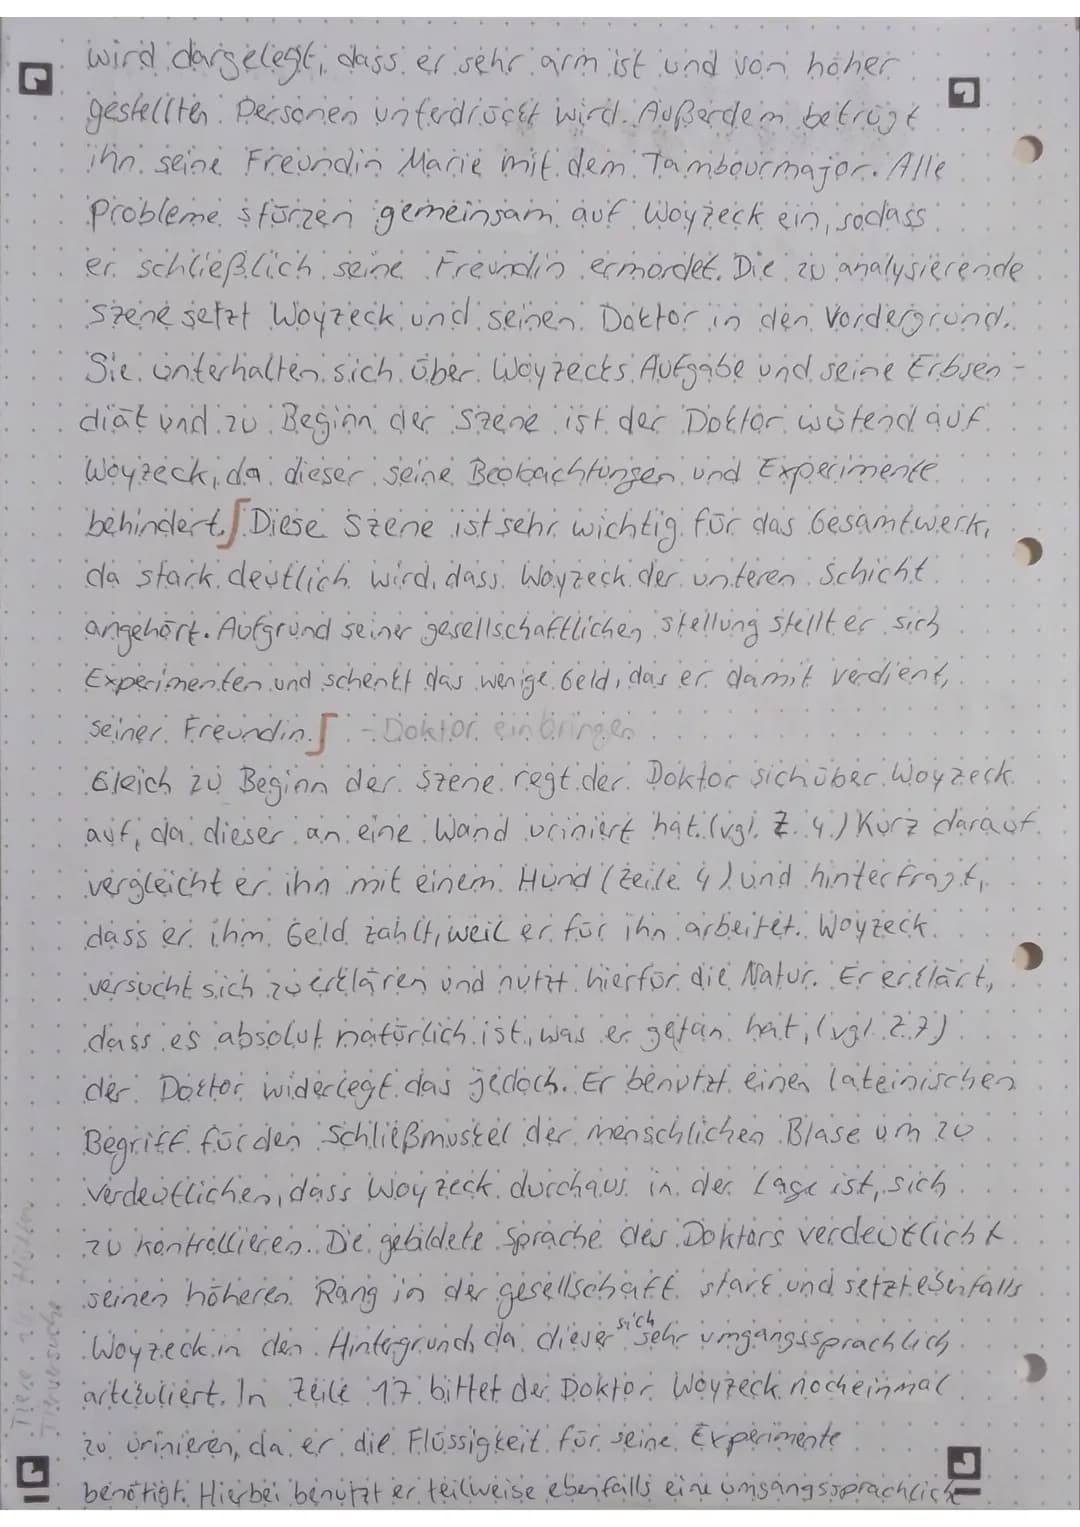 wird dargelegt, dass er sehr arm ist und von höher
gestellten Personen unterdrückt wird. Außerdem betrügt
ihn seine Freundin Marie mit dem Tambourmajor. Alle
Probleme stürzen gemeinsam auf Woyzeck ein, sodass
er schließlich seine Freundin ermordet. Die zu analysierende
Szene setzt Woyzeck und seinen Doktor in den Vordergrund.
Sie unterhalten sich über Woyzecks Aufgabe und seine Erbsen-
diät und zu Beginn der Szene ist der Doktor wütend auf
Woyzeck, da dieser seine Beobachtungen und Experimente
behindert. Diese Szene ist sehr wichtig für das Gesamtwerk,
da stark deutlich wird, dass Woyzeck der unteren Schicht
angehört. Aufgrund seiner gesellschaftlichen Stellung stellt er sich
Experimenten und schenkt das wenige Geld, das er damit verdient,
seiner Freundin. - Doktor einbringen
Gleich zu Beginn der Szene regt der Doktor sich über Woyzeck
auf, da dieser an eine Wand uriniert hat (vgl. Z. 4.) Kurz darauf
vergleicht er ihn mit einem Hund (Zeile 4) und hinterfragt,
dass er ihm Geld zahlt, weil er für ihn arbeitet. Woyzeck
versucht sich zu erklären und nutzt hierfür die Natur. Er erklärt,
dass es absolut natürlich ist, was er getan hat, (vgl. Z. 7)
der Doktor widerlegt das jedoch. Er benutzt einen lateinischen
Begriff für den Schließmuskel der menschlichen Blase um zu
verdeutlichen, dass Woyzeck durchaus in der Lage ist, sich
zu kontrollieren. Die gebildete Sprache des Doktors verdeutlicht
seinen höheren Rang in der gesellschaft stark und setzt ebenfalls
Woyzeck in den Hintergrund, da dieser sich sehr umgangssprachlich
artikuliert. In Zeile 17 bittet der Doktor Woyzeck nocheinmal
zu urinieren, da er die Flüssigkeit für seine Experimente
benötigt. Hierbei benutzt er teilweise ebenfalls eine umgangssprachlich
Tierversuche